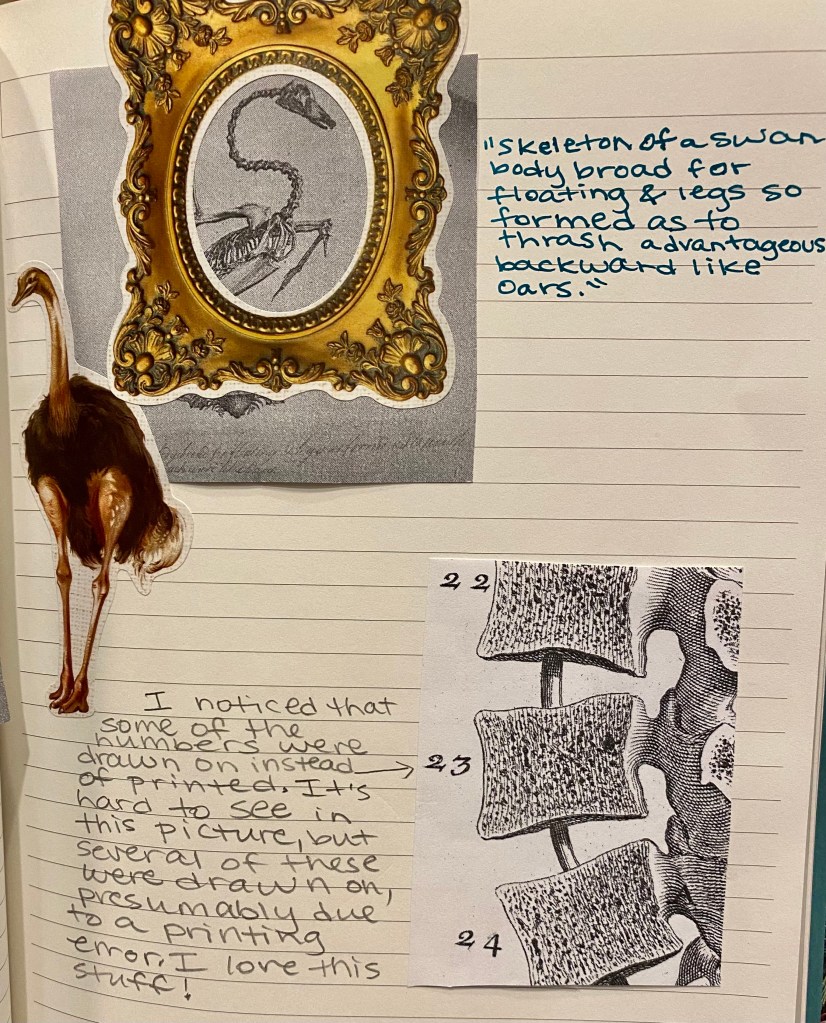 "Skeleton of a swan
body broad for
floating & legs so
formed as to
thrash advantageous
backward like
oars."
22
23
24
I noticed that
some of the
numbers were
drawn on instead →
of printed. It's
hard to see in
this picture, but
several of these
were drawn on,
presumably due
to a printing
error. I love this
stuff!